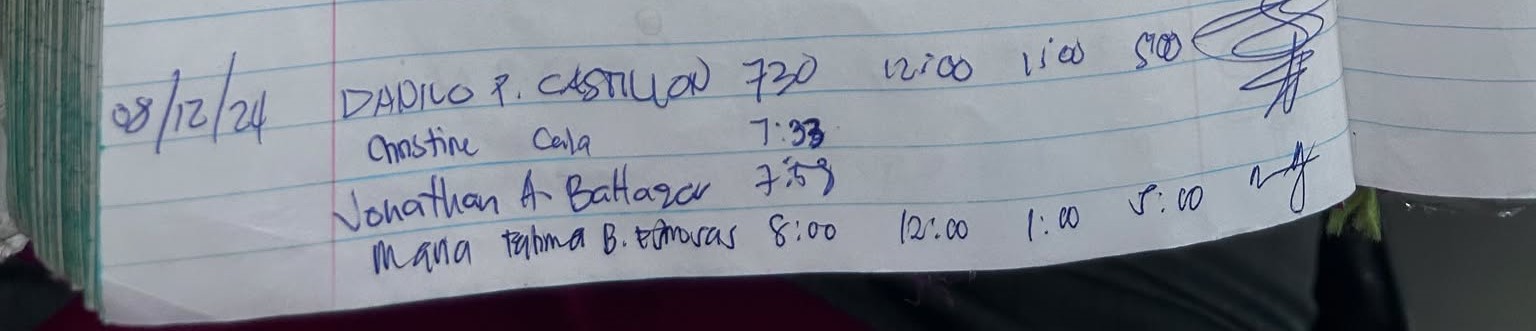 08/12/24 DANILO P. CASTILLON 730 12:00 1:00 5:00
Christine Cala 7:33
Jonathan A. Baltazar 7:58
Maria Fatima B. 8:00 12:00 1:00 5:00